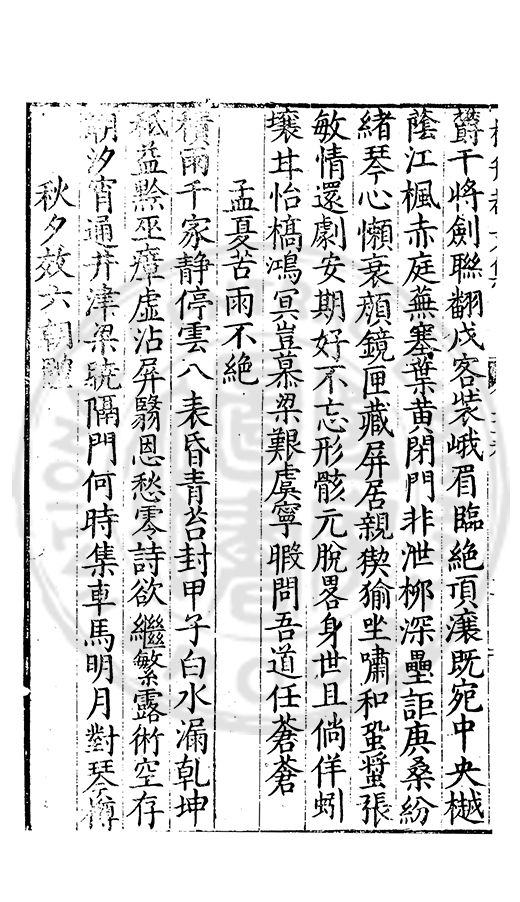 欝干將劍聯翻戍客裝峨眉臨絶頂瀼既宛中央樾
蔭江楓赤庭蕪塞葉黄閉門非泄柳深壘詎庚桑紛
緒琴心懶衰顔鏡匣藏屏居親猰㺄坐嘯和蛩螿張
敏情還劇安期好不忘形骸元脫畧身世且倘佯蚓
壤甘怡槁鴻冥豈慕梁艱虞寧暇問吾道任蒼蒼
孟夏苦雨不絶
積雨千家静停雲八表昏青苔封甲子白水漏乾坤
秪益黔巫瘴虚沾屏翳恩愁零詩欲繼繁露術空存
潮汐宵通井津梁曉隔門何時集車馬明月對琴樽
秋夕效六朝體